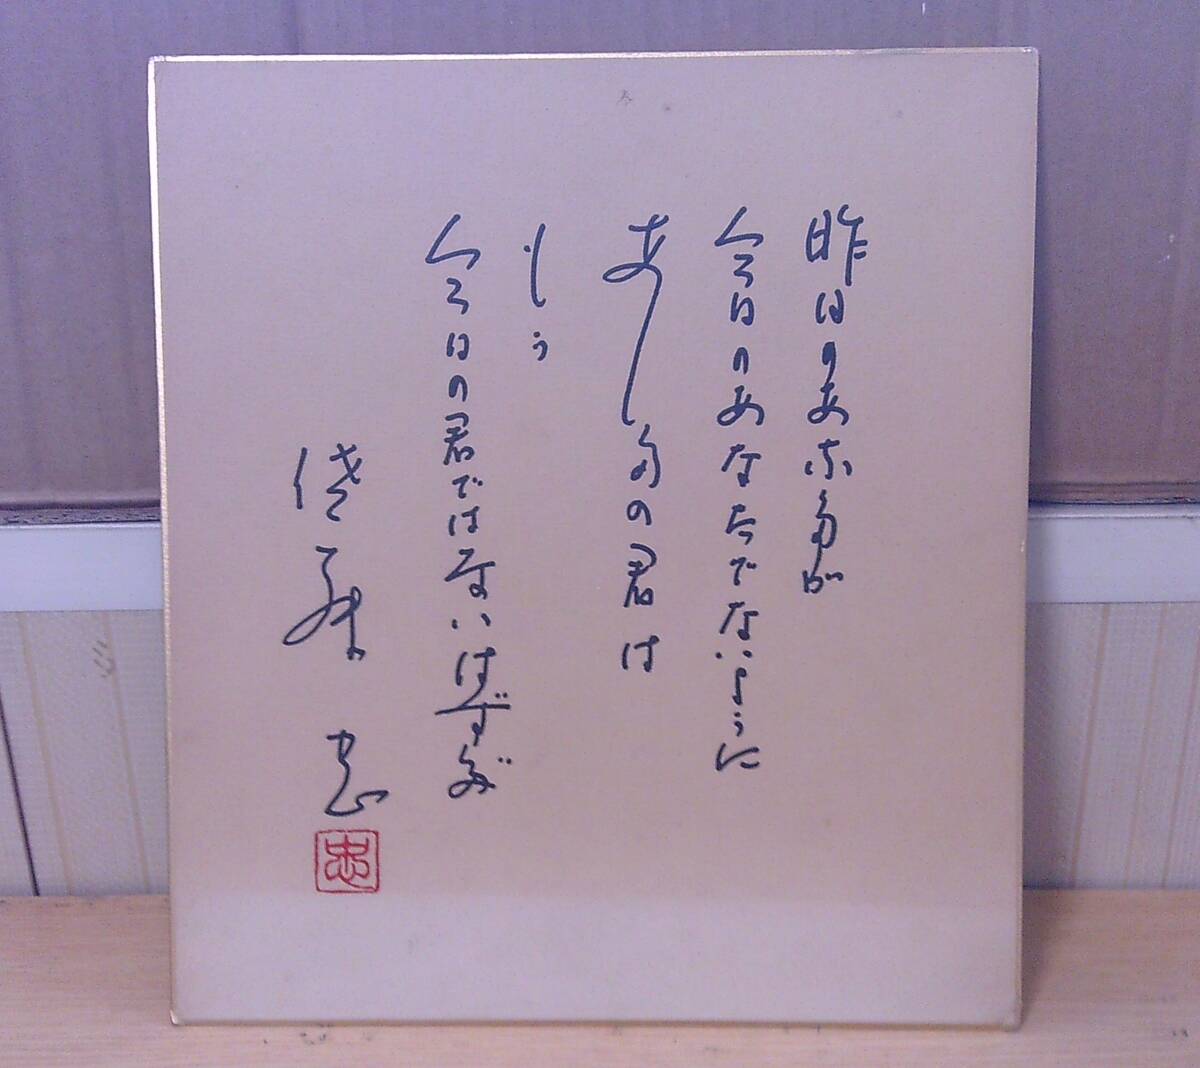 昨日のあなたが
今日のあなたでないように
あしたの君は
もう
今日の君ではないはずだ
佐藤 忠
忠